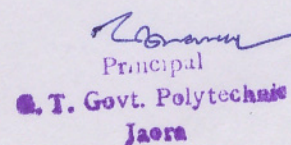 Principal
G. T. Govt. Polytechnic
Jaora